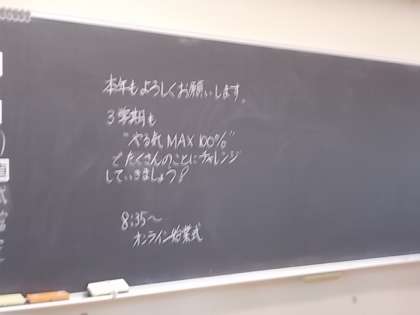 本年もよろしくお願いします。
3学期も
"やる気MAX100%"
でたくさんのことにチャレンジ
していきましょう!
8:35〜
オンライン始業式